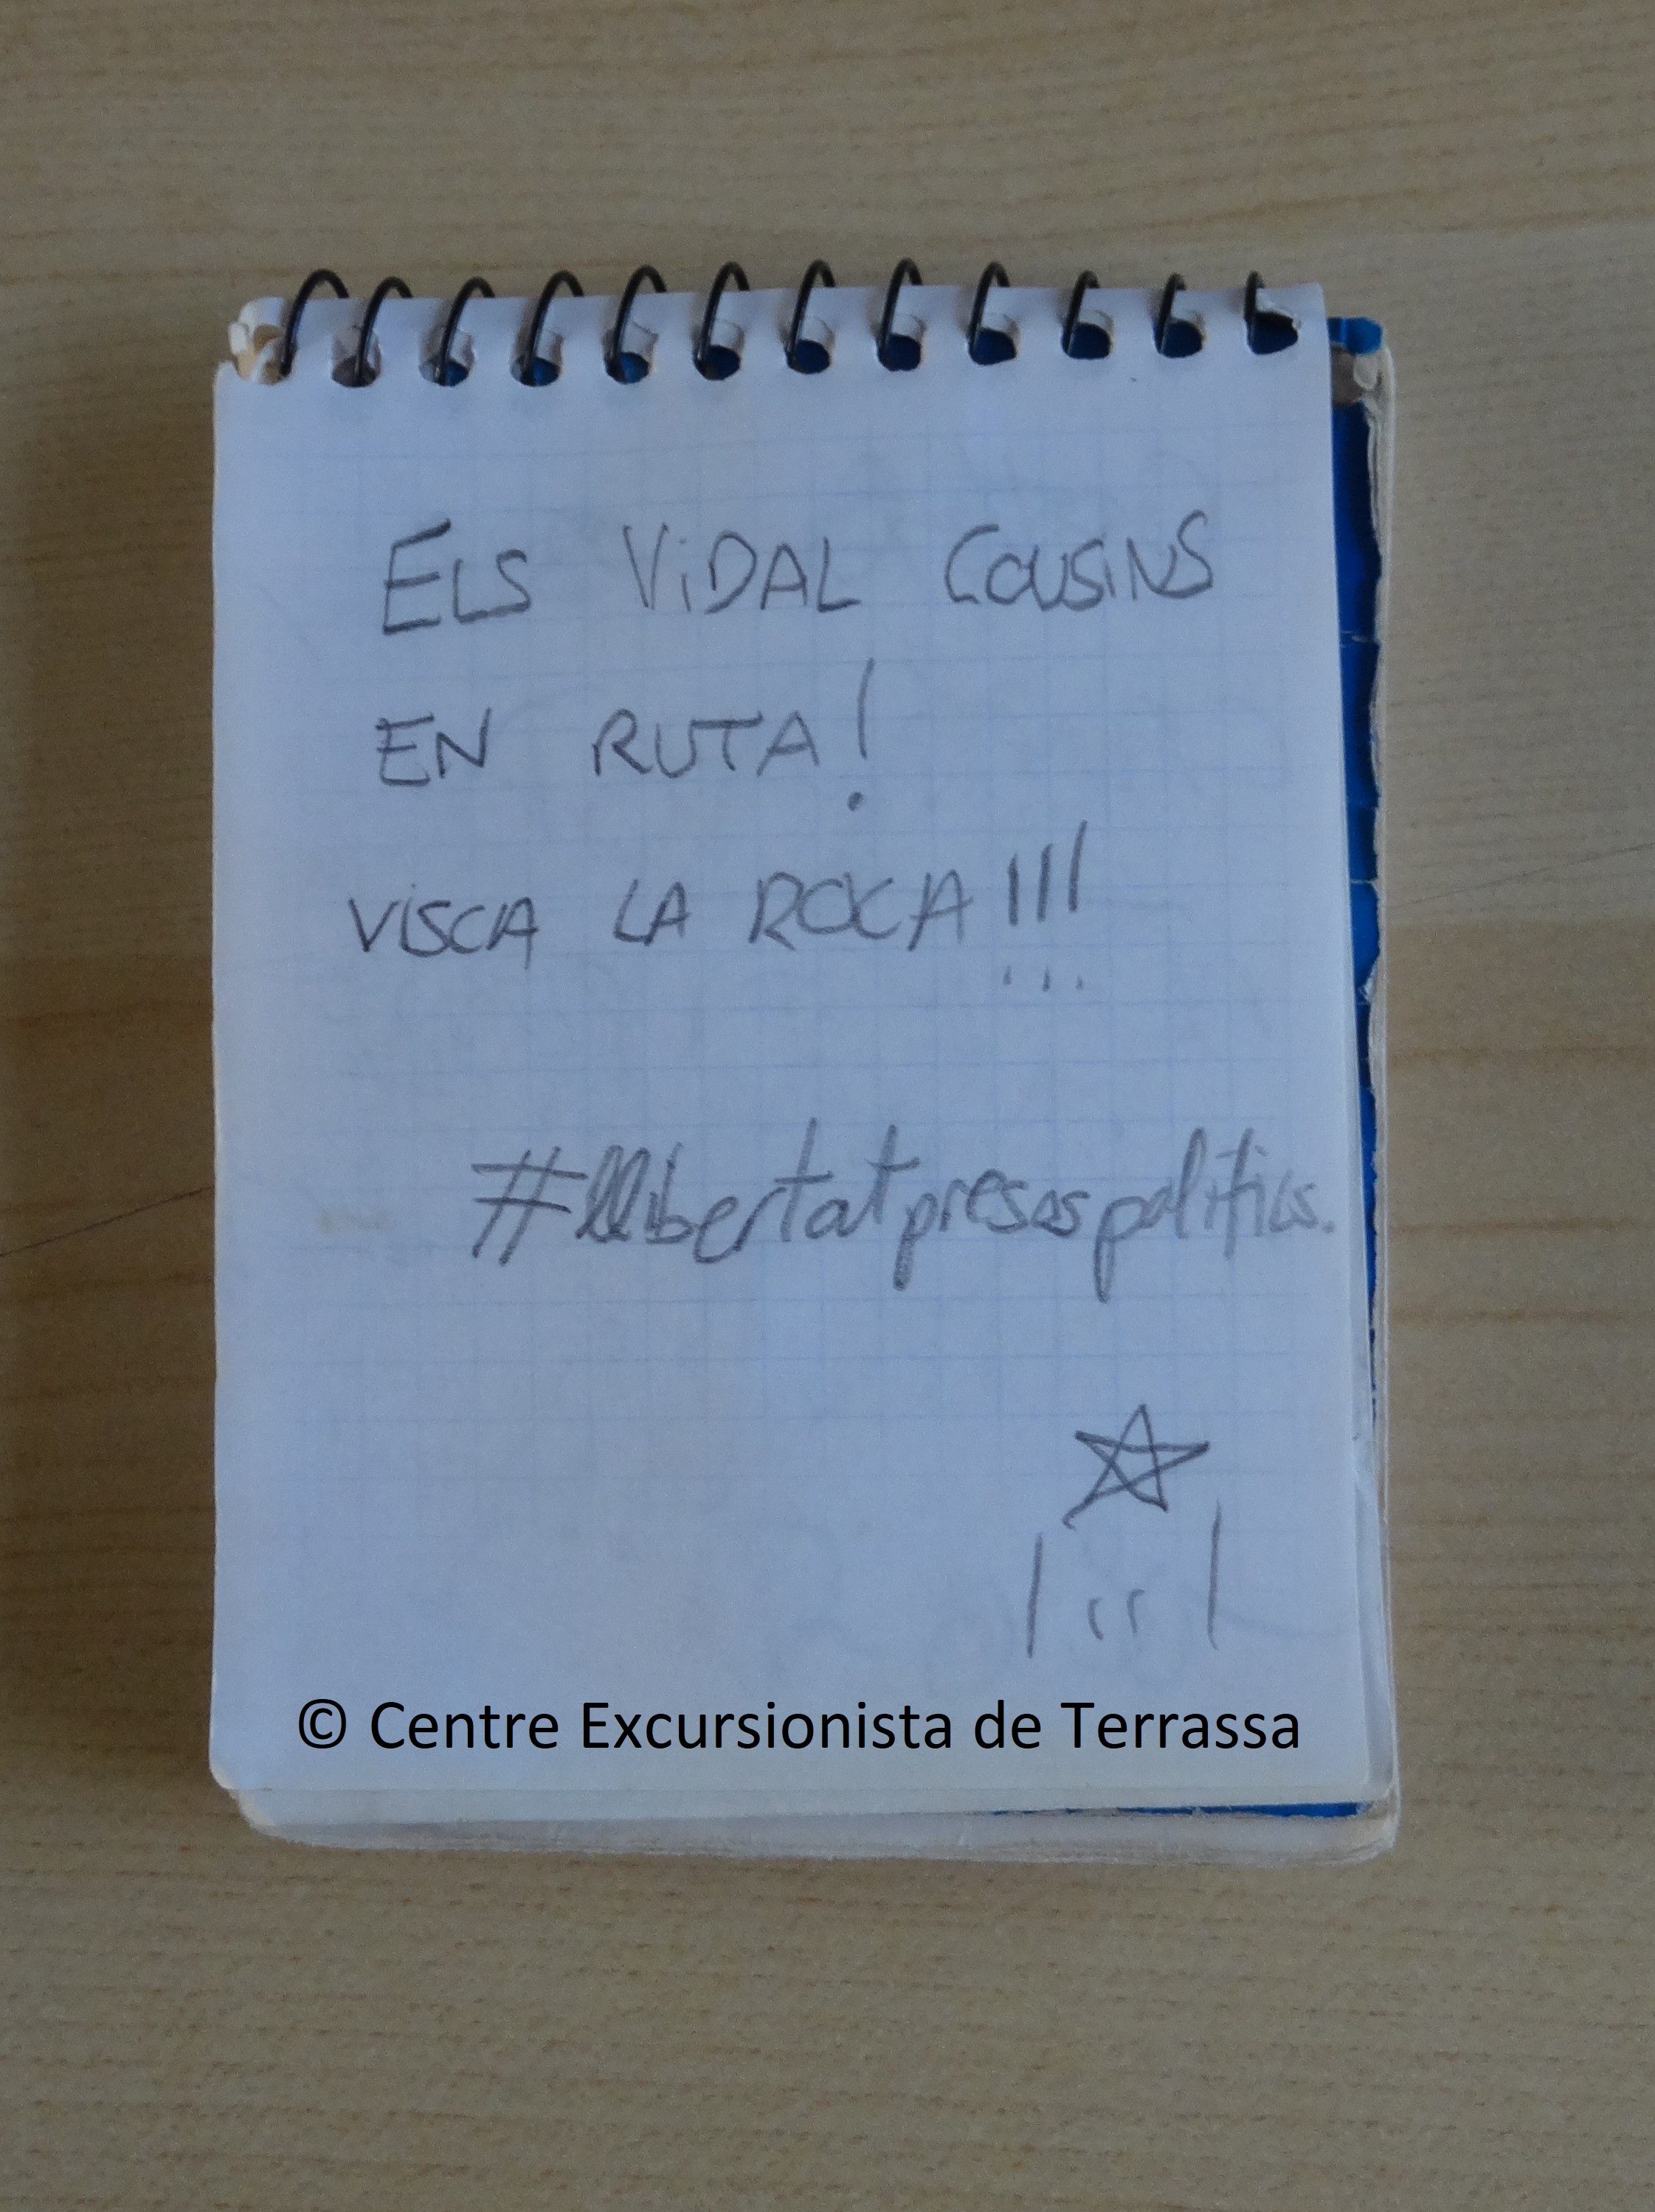 ELS ViDAL COUSiNS
EN RUTA!
ViSCA LA ROCA!!!
#llibertatpresospolítics.
© Centre Excursionista de Terrassa